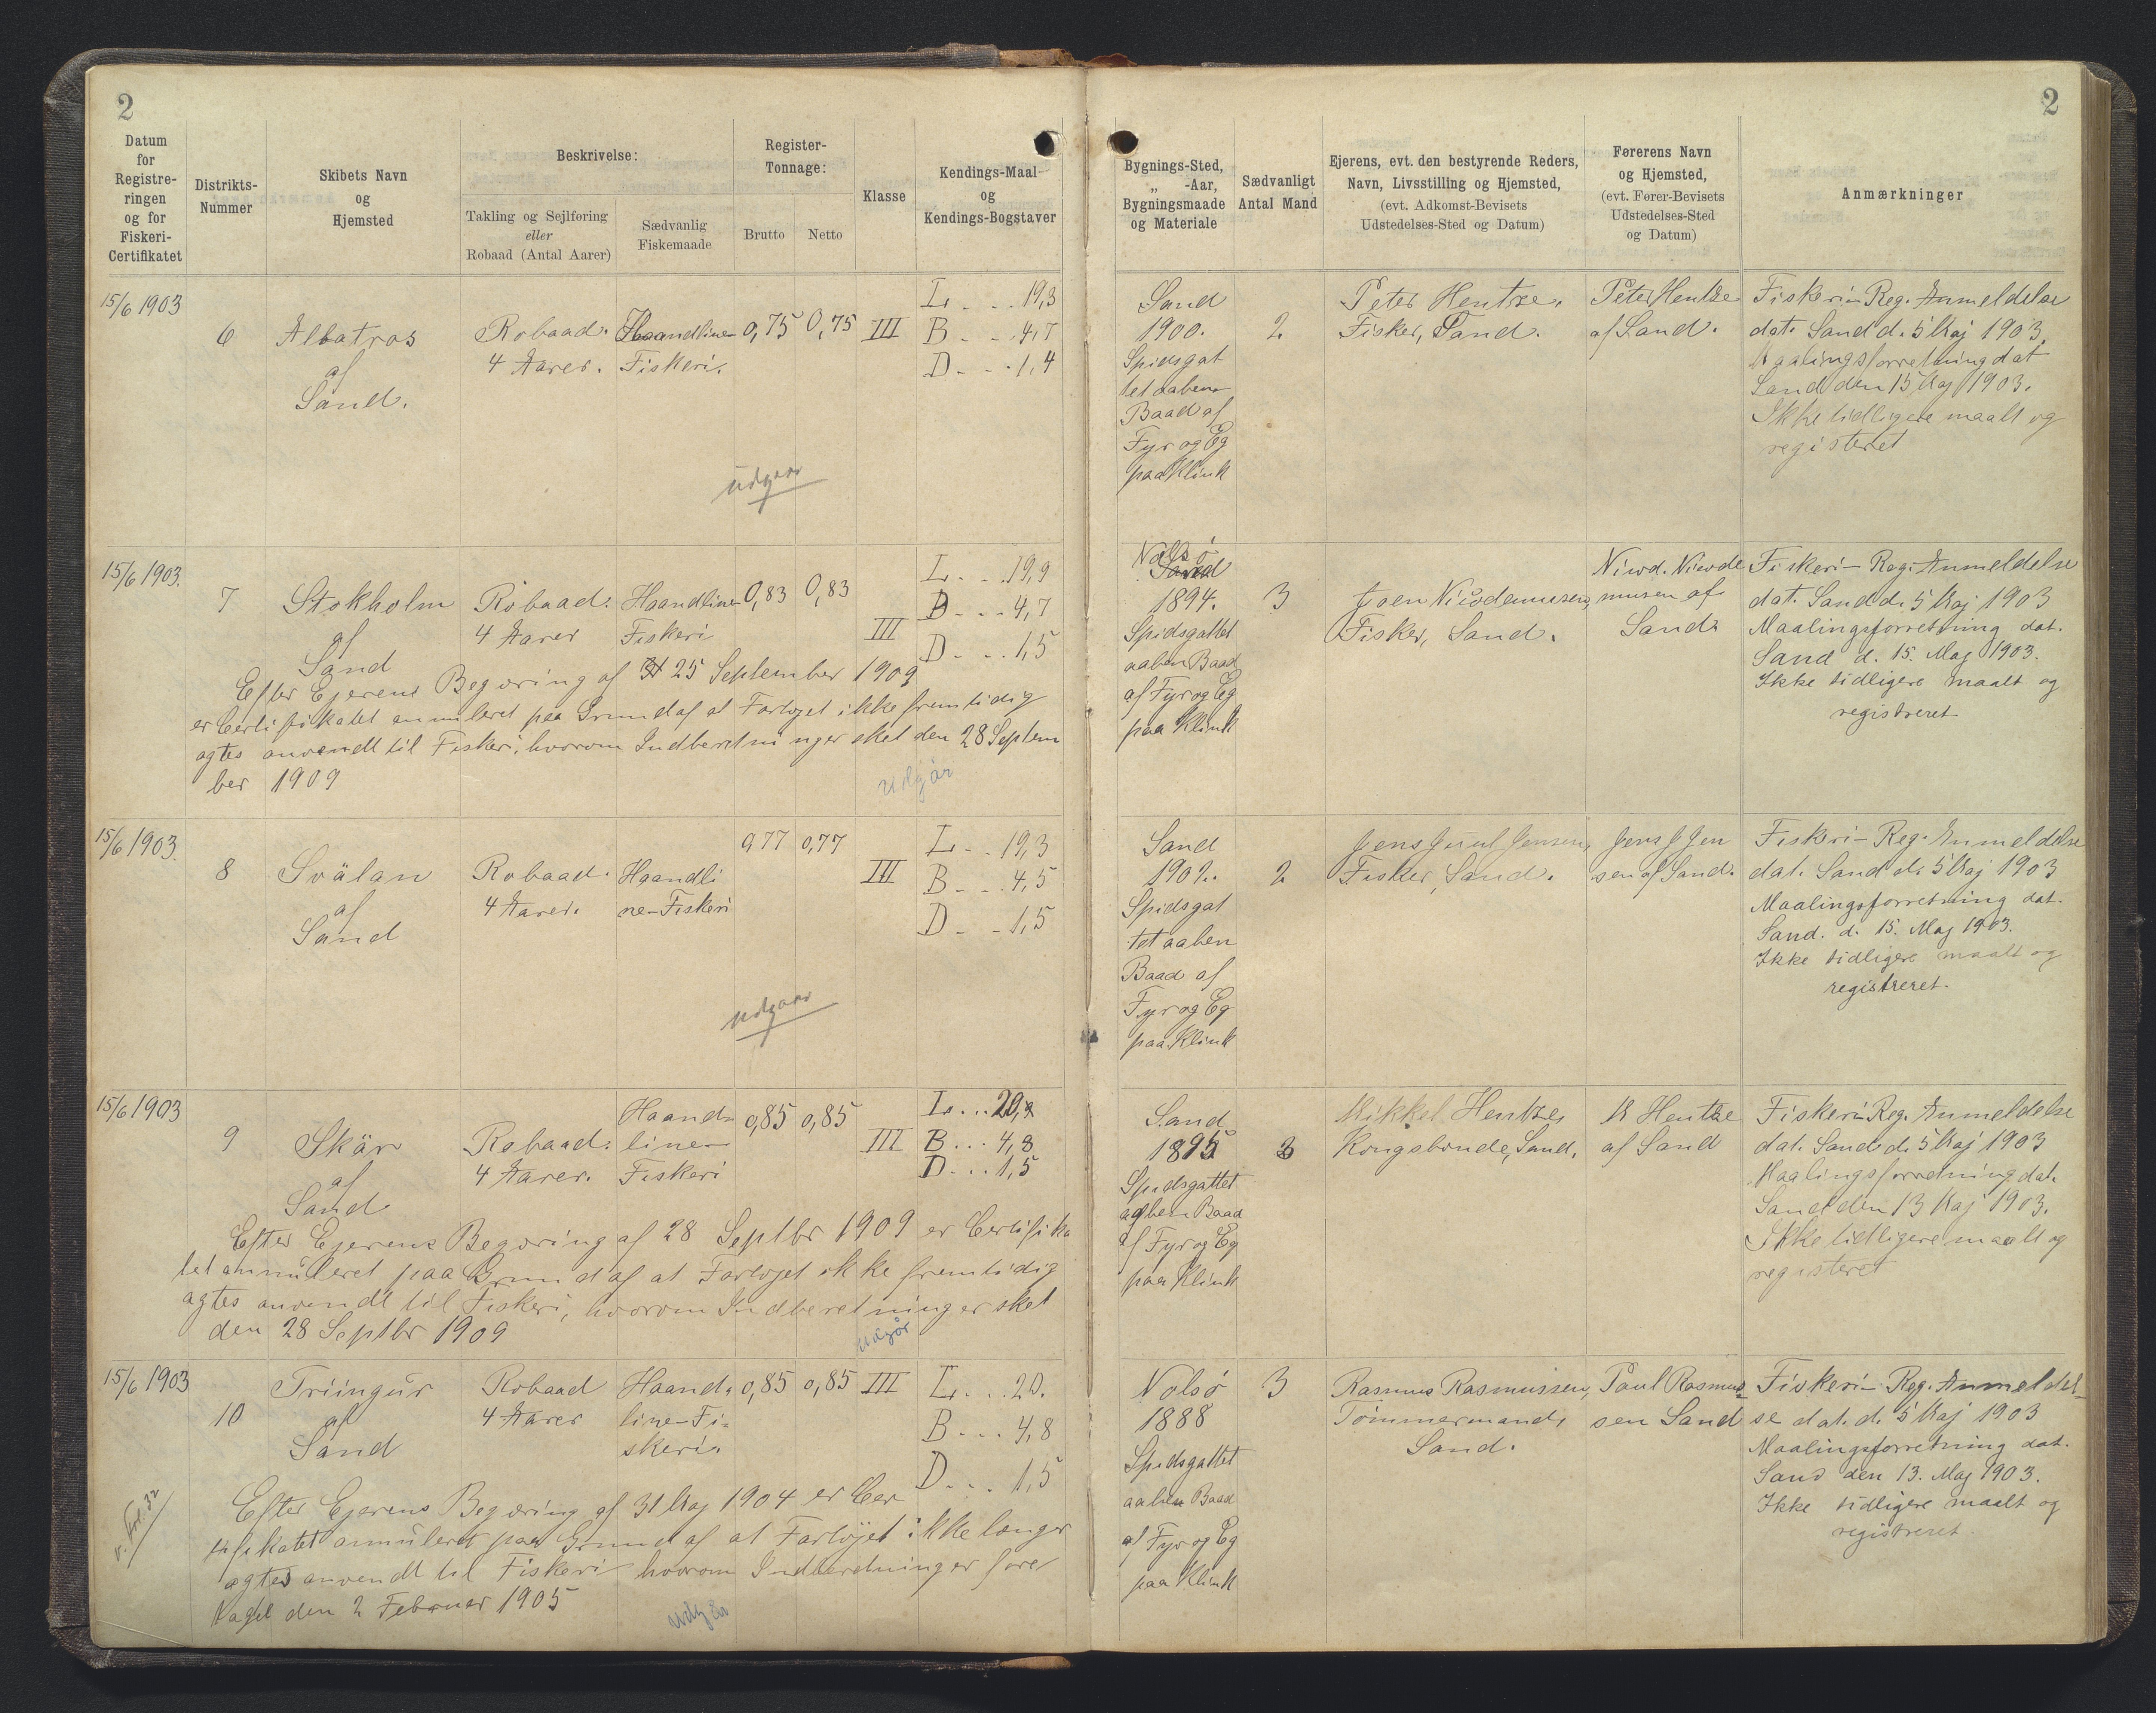 2
2
Datum
for
Registre-
ringen
og for
Fiskeri-
Certifikatet
Distrikts-
Nummer
Skibets Navn
og
Hjemsted
Beskrivelse:
Takling og Sejlføring
eller
Robaad (Antal Aarer)
Sædvanlig
Fiskemaade
Register-
Tonnage:
Brutto
Netto
Klasse
Kendings-Maal
og
Kendings-Bogstaver
Bygnings-Sted,
„ -Aar,
Bygningsmaade
og Materiale
Sædvanligt
Antal Mand
Ejerens, evt. den bestyrende Reders,
Navn, Livsstilling og Hjemsted,
(evt. Adkomst-Bevisets
Udstedelses-Sted og Datum)
Førerens Navn
og Hjemsted,
(evt. Fører-Bevisets
Udstedelses-Sted
og Datum)
Anmærkninger
15/6 1903
6
Albatros
af
Sand.
Robaad.
4 Aarer.
Haandline-
Fiskeri.
0,75
0,75
III
L . . . 19,3
B . . . 4,7
D . . . 1,4
udgaar
Sand
1900.
Spidsgat
tet aaben
Baad af
Fyr og Eg
paa Klink
2
Peter Hentze,
Fisker, Sand.
Peter Hentze
af Sand.
Fiskeri-Reg. Anmeldelse
dat. Sand d. 5 Maj 1903.
Maalingsforretning dat
Sand den 15 Maj 1903.
Ikke tidligere maalt og
registeret
15/6 1903.
7
Stokholm
af
Sand
Robaad.
4 Aarer
Haandline-
Fiskeri
0,83
0,83
III
L . . . 19,9
B . . . 4,7
D . . . 1,5
Efter Ejerens Begæring af 25 September 1909
er Certifikatet annuleret paa Grund af at Fartøjet ikke fremtidig
agtes anvendt til Fiskeri, hvorom Indberetning er sket den 28 Septem
ber 1909
Udgår
Nolsø
Sand
1894.
Spidsgattet
aaben Baad
af Fyr og Eg
paa Klink
3
Joen Nicodemusen,
Fisker, Sand.
Nicod. Nicode
musen af
Sand.
Fiskeri-Reg. Anmeldelse
dat. Sand d. 5 Maj 1903
Maalingsforretning dat.
Sand d. 15. Maj 1903.
Ikke tidligere maalt og
registreret
15/6 1903.
8
Svälan
af
Sand
Robaad.
4 Aarer.
Haandli
ne-Fiskeri
0,77
0,77
III
L . . 19,3
B . . . 4,5
D . . 1,5
udgaar
Sand
1902.
Spidsgat
tet aaben
Baad af
Fyr og Eg
paa Klink
2
Jens Juul Jensen,
Fisker, Sand.
Jens J Jen
sen af Sand.
Fiskeri-Reg. Anmeldelse
dat. Sand d. 5 Maj 1903
Maalingsforretning dat.
Sand. d. 15. Maj 1903.
Ikke tidligere maalt og
registreret.
15/6 1903
9
Skär
af
Sand
Robaad.
4 Aarer.
Haand-
line-
Fiskeri
0,85
0,85
III
L . . . 20,
B . . . 4,8
D . . . 1,5
Efter Ejerens Begæring af 28 Septbr 1909 er Certifika
tet annuleret paa Grund af at Fartøjet ikke fremtidig
agtes anvendt til Fiskeri, hvorom Indberetning er sket
den 28 Septbr 1909
Udgår
Sand
1895
Spidsgattet
aaben Baad
af Fyr og Eg
paa Klink
3
Mikkel Hentze,
Kongsbonde, Sand.
M Hentze
af Sand
Fiskeri-Reg. Anmeldelse
dat. Sand d. 5 Maj 1903
Maalingsforretning dat.
Sand den 13 Maj 1903.
Ikke tidligere maalt og
registeret
15/6 1903
10
Triingur
af
Sand
Robaad
4 Aarer
Haand-
line-Fi-
skeri.
0,85
0,85
III
L . . . 20.
B . . . 4,8
D . . . 1,5
Efter Ejerens Begæring af 31 Maj 1904 er Cer
tifikatet annuleret paa Grund af at Fartøjet ikke længer
agtes anvendt til Fiskeri hvorom Indberetning er fore
taget den 2 Februar 1905
Udgår
Nolsø
1888
Spidsgattet
aaben Baad
af Fyr og Eg
paa Klink
3
Rasmus Rasmussen,
Tømmermand,
Sand.
Paul Rasmus-
sen Sand
Fiskeri-Reg. Anmeldel-
se dat. d. 5 Maj 1903
Maalingsforretning dat.
Sand den 13. Maj 1903.
Ikke tidligere maalt og
registreret.